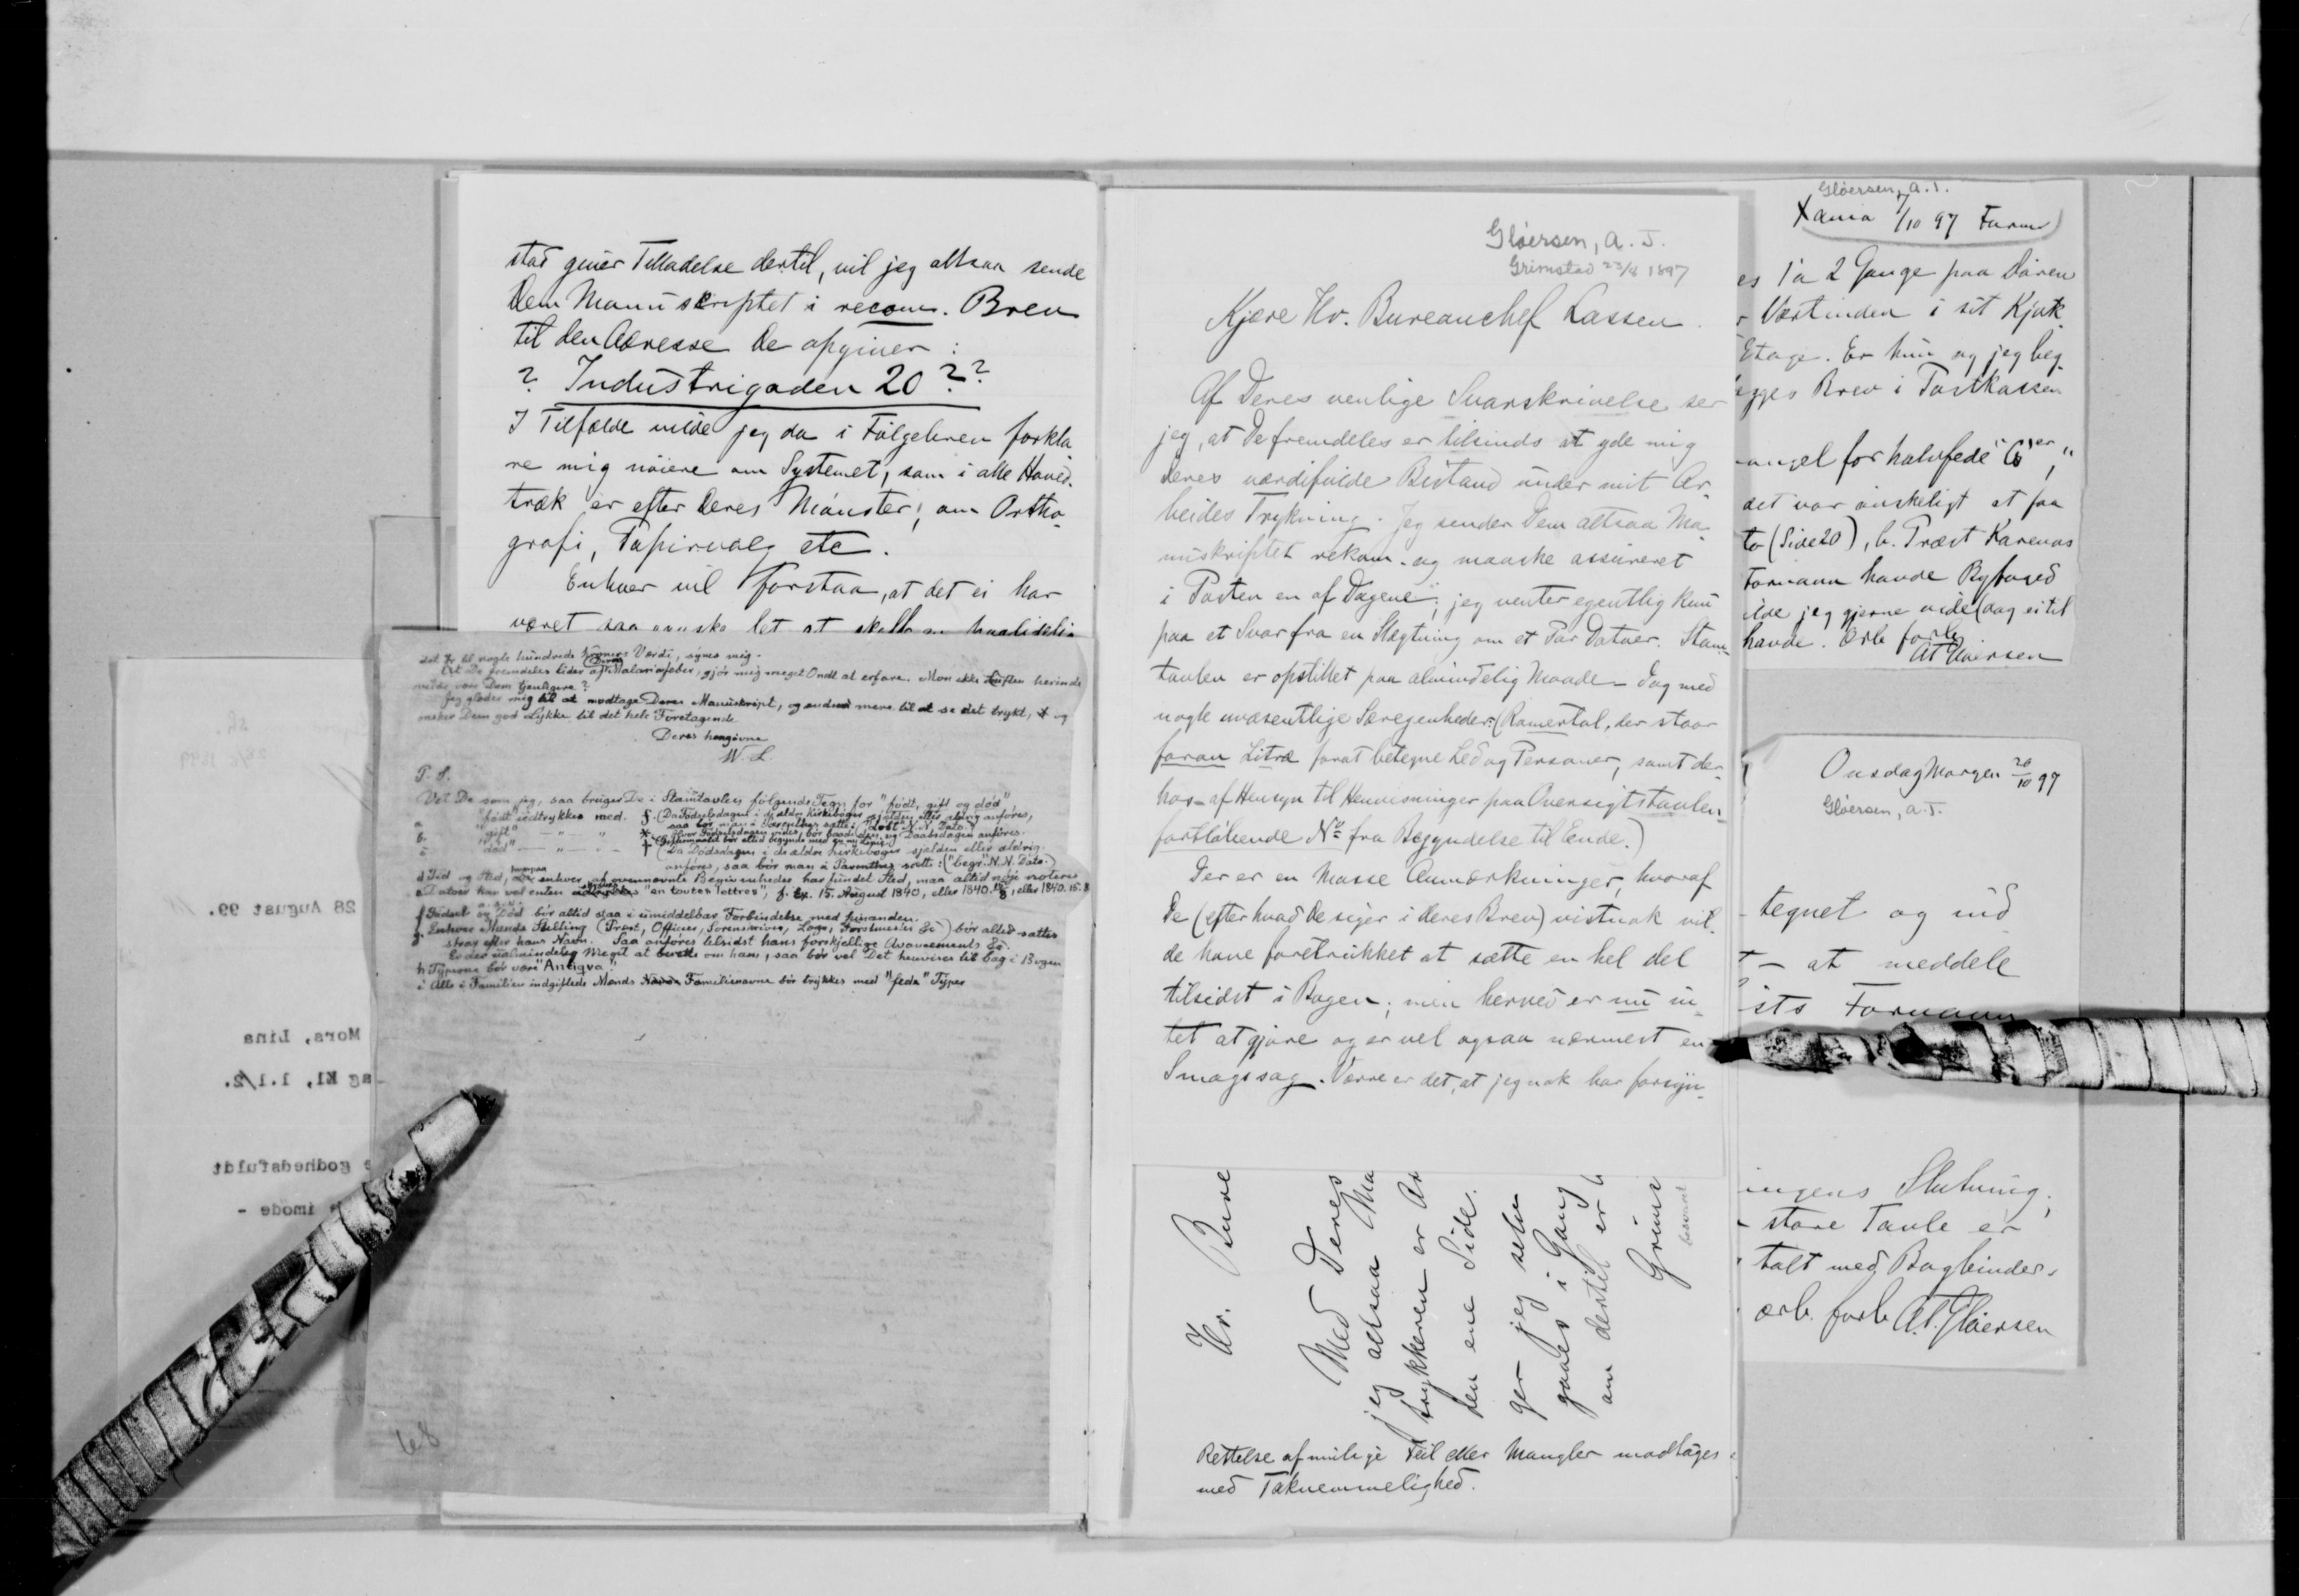 stad giver Tilladelse dertil, vil jeg altsaa sende
Dem Manuskriptet i recom. Brev
til den Adresse De opgiver :
? Industrigaden 20 ??
I Tilfælde vilde jeg da i Følgebrev forkla
re mig nöiere om Systemet, som i alle Hoved-
træk er efter Deres Mönster; om Ortho-
grafi, Papirvalg etc.
Enhver vil forstaa, at det ei har
været saa ganske let at skaffe
det for til nogle hundrede Kroners Værdi, synes mig.
At De fremdeles lider af Malariafeber, gjör mig meget Ondt at erfare. Mon ikke Luften herinde
vilde være Dem tjenligere?
Jeg glæder mig til at modtage Deres Manuskript, og endnu mere til at se det trykt, og
önsker Dem god Lykke til det hele Foretagende.
Deres hengivne
W. L.
P. S.
Vil De som jeg, saa bruger De i Stamtavlen fölgende Tegn for "födt, gift og död"
a. "födt" udtrykkes med. f. (Da Födselsdagen i de ældre Kirkeböger sjelden eller aldrig anföres,
saa bör man i Parenthes sætte: ("Döbt" N. N. Dato.)
Hvor Födselsdagen vides, bör baade den og Daabsdagen anföres.
b. "gift" — " — " *
c. "död" — " — † (Da Dödsdagen i de ældre Kirkeböger sjelden eller aldrig
anföres, saa bör man i Parenthes sætte: ("begr." N. N. Dato.)
d Tid og Sted, hvorpaa enhver af ovennævnte Begivenheder har fundet Sted, maa altid nöje noteres
e. Datoer kan vel enten "en toutes lettres", f. Ex. 15. August 1840, eller 1840.15/8, eller 1840.15.8
f Födsel og Död bör altid staa i umiddelbar Forbindelse med hinanden.
g. Enhver Mands Stilling (Præst, Officer, Sorenskriver, Læge, Forstmester &c) bör altid sættes
strax efter hans Navn. Saa anföres tilsidst hans forskjellige Avancements &c.
Er der ualmindelig Meget at berette om ham, saa bör vel Det henvises til bag i Bogen
h Typerne bör være "Antiqva"
i Alle i Familien indgiftede Mænds Familienavne bör trykkes med "fede" Typer
68
28 August 99.
Mors, Lina
ag Kl, 1.1/2.
godhedsfuldt
imøde -
Glöersen, A. J.
Grimstad 23/8 1897
Kjære Hr. Bureauchef Lassen.
Af Deres venlige Svarskrivelse ser
jeg, at De fremdeles er tilsinds at yde mig
Deres værdifulde Bistand under mit Ar-
beides Trykning. Jeg sender Dem altsaa Ma-
nuskriptet rekom. og maaske assureret
i Posten en af Dagene; jeg venter egentlig kun
paa et Svar fra en Slægtning om et Par Datoer. Stam-
tavlen er opstillet paa almindelig Maade - dog med
nogle uvæsentlige Særegenheder: (Romertal, der staar
foran Litræ forat betegne Led og Personer, samt der-
hos - af Hensyn til Henvisninger paa Oversigtstavlen -
fortlöbende No fra Begyndelse til Ende.)
Der er en Masse Anmærkninger, hvoraf
De (efter hvad De siger i Deres Brev) vistnok vil-
de have foretrukket at sætte en hel del
tilsidst i Bogen; men herved er nu in-
tet at gjöre og er vel ogsaa nærmest en
Smagssag. Værre er det, at jeg nok har forsyn-
Hr. Bure
Med Deres
jeg altsaa Ma
trykkeren er
den ene Side.
ger jeg selv
gaaes i Gang
om dertil er
Grims
Rettelse af mulige Feil eller Mangler modtages
med Taknemmelighed.
Glöersen, A. J.
Xania 1/10 97 Form
es 1 à 2 Gange paa Dören
Værtinden i sit Kjøk
Etage. Er hun og jeg beg
gges Brev i Postkassen
angel for halvfede "G"er,"
det var önskeligt at faa
to (Side 20), b. Præst Karenas
Fornavn havde Byfoged
ilde jeg gjerne vide (dog ei til
havde. Ærb. forb.
AT Glöersen
Onsdag Morgen 20/10 97
Glöersen, A. J.
tegnet og ind
- at meddele
sts Fornavn
ingens Slutning;
store Tavle er
talt med Bogbinder.
ærb. forb. A.T. Glöersen